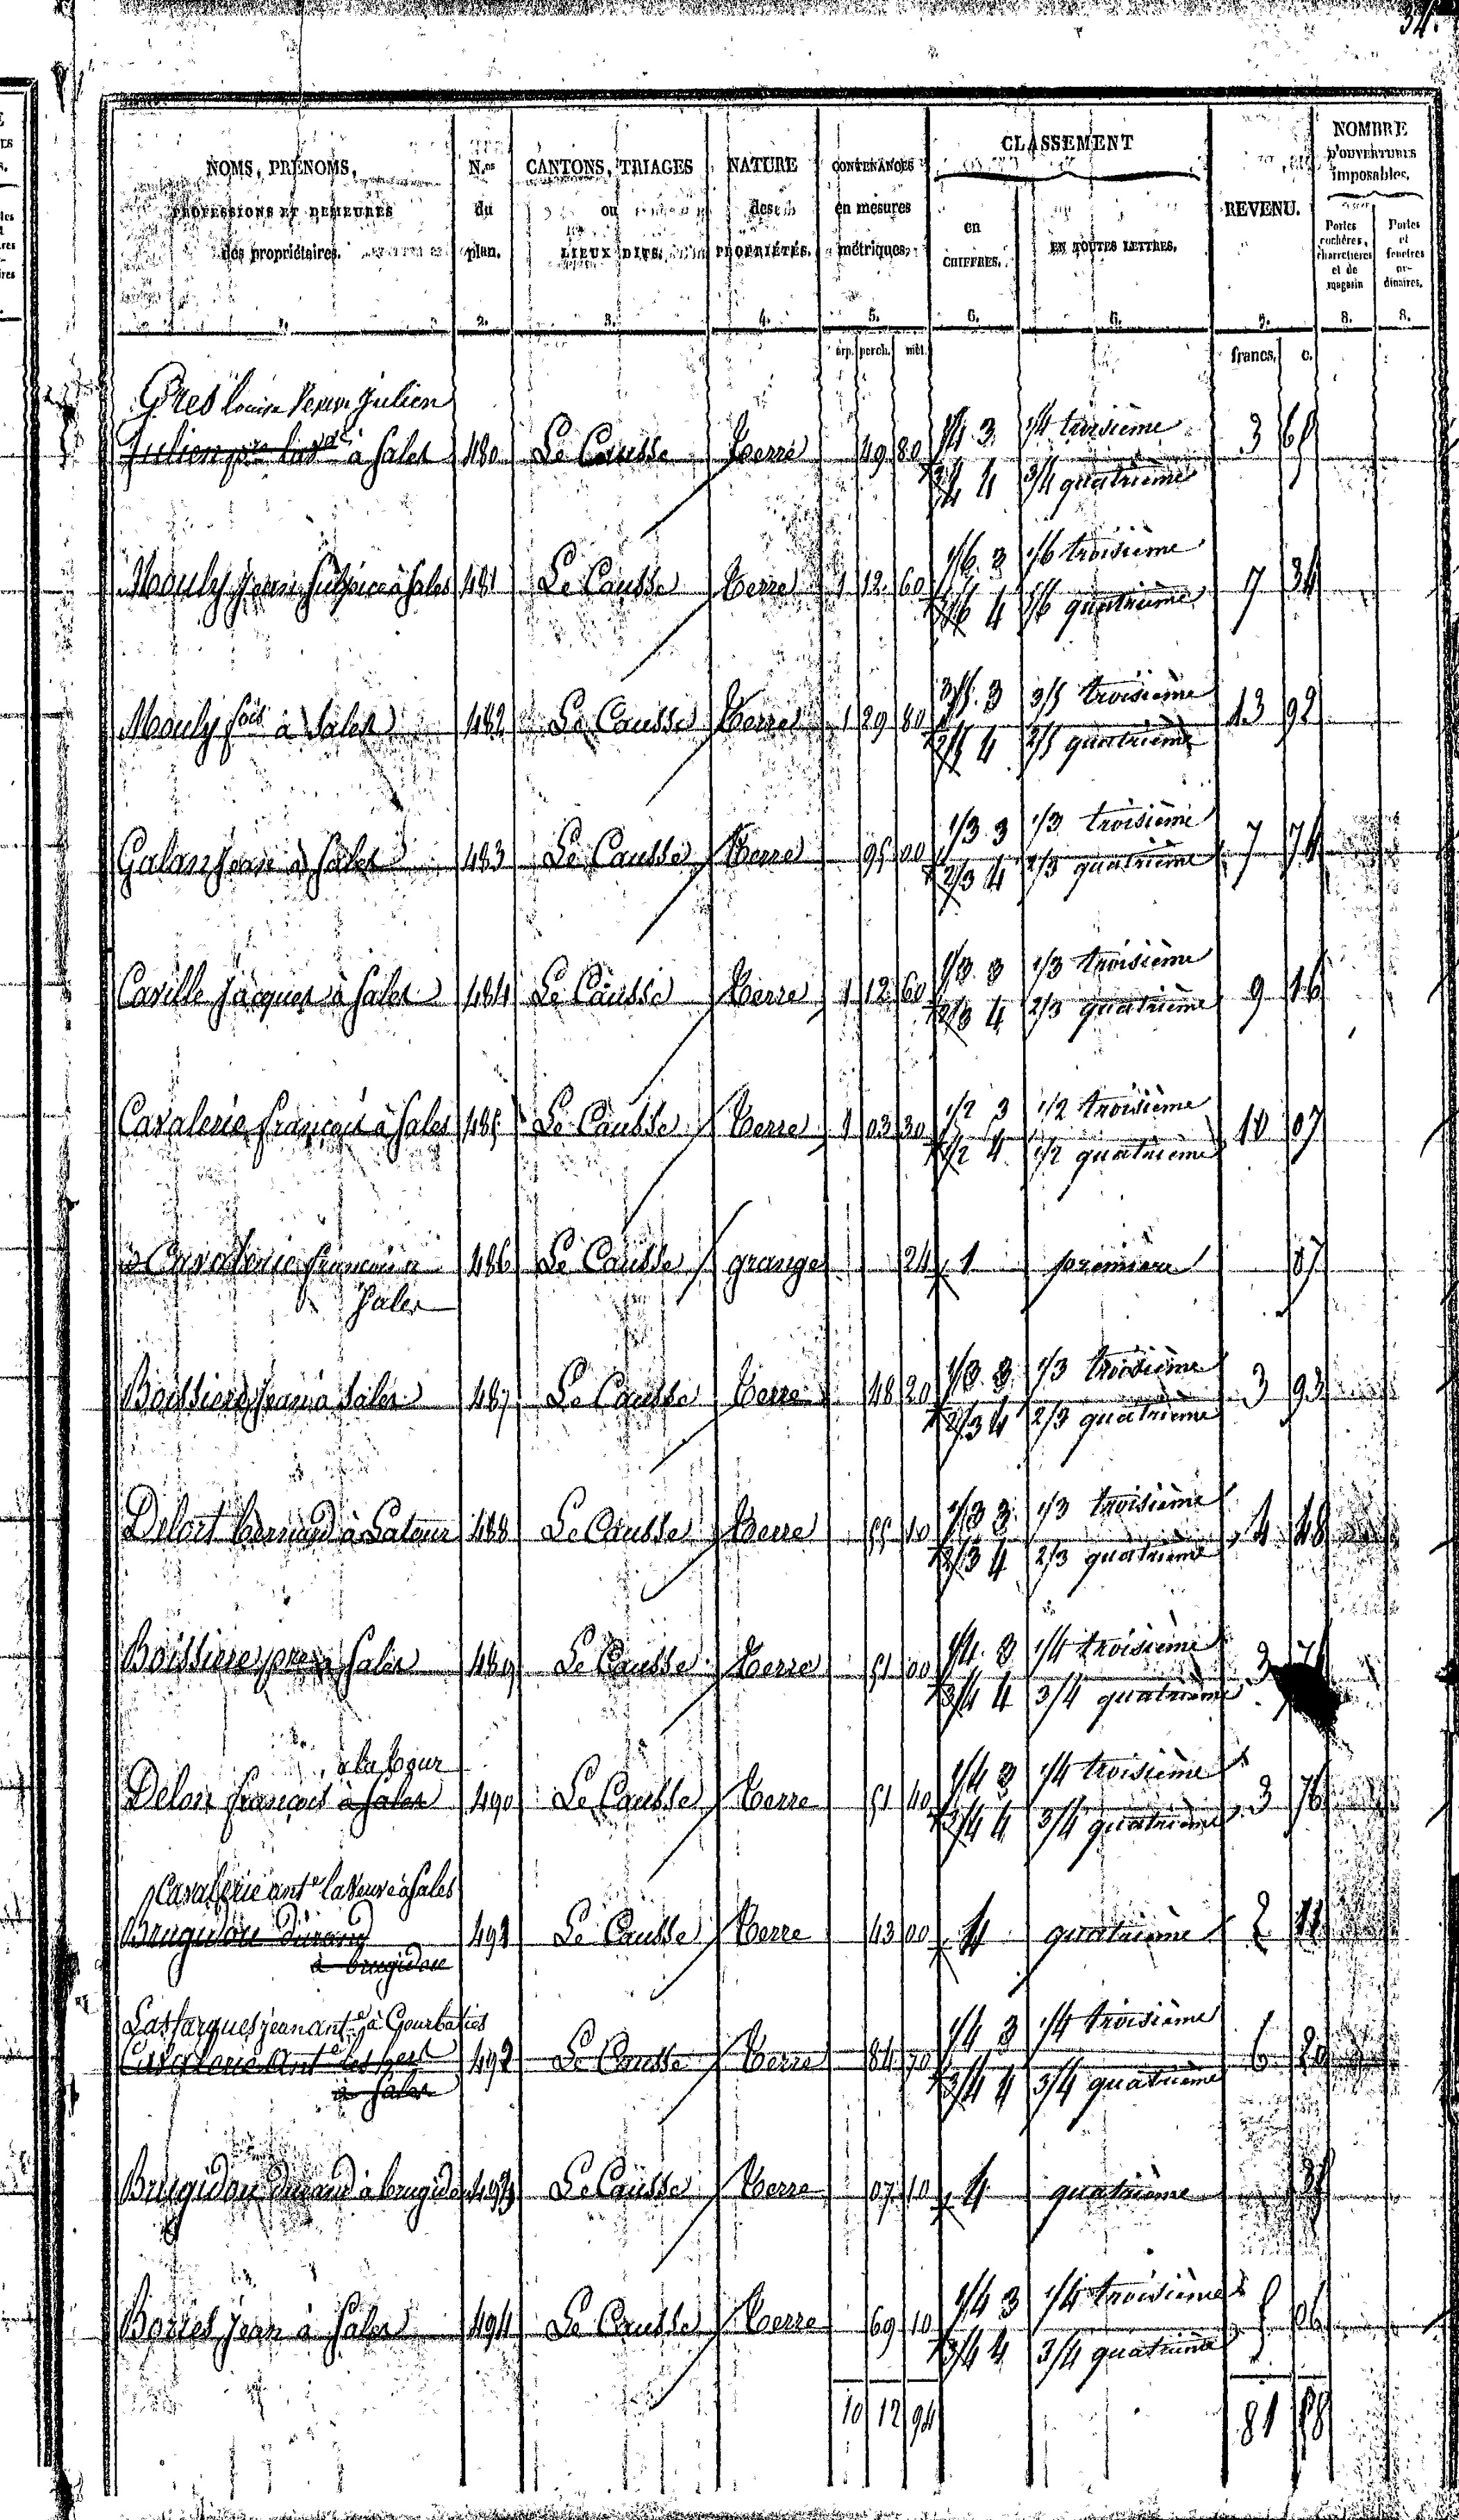 34.
NOMS, PRÉNOMS, PROFESSIONS ET DEMEURES des propriétaires. | N.os du plan. | CANTONS, TRIAGES ou LIEUX DITS. | NATURE des PROPRIÉTÉS. | CONTENANCES en mesures métriques. | CLASSEMENT en CHIFFRES. | EN TOUTES LETTRES. | REVENU. | NOMBRE D'OUVERTURES imposables. Portes cochères, charretières et de magasin | Portes et fenêtres ordinaires.
1. | 2. | 3. | 4. | 5. | 6. | 6. | 7. | 8. | 8.
arp. | perch. | mèt. | francs, | c.
Gres Louise Veuve Julien
Julien à Sales | 480 | Le Causse | Terre | 49 | 80 | 1/4 3 | 1/4 troisième | 3 | 65
3/4 4 | 3/4 quatrième
Mouly Jean Sulpice à Sales | 481 | Le Causse | Terre | 1 | 12 | 60 | 1/6 3 | 1/6 troisième | 7 | 34
5/6 4 | 5/6 quatrième
Mouly fois à Sales | 482 | Le Causse | Terre | 1 | 29 | 80 | 3/5 3 | 3/5 troisième | 13 | 92
2/5 4 | 2/5 quatrième
Galan Jean à Sales | 483 | Le Causse | Terre | 95 | 00 | 1/3 3 | 1/3 troisième | 7 | 74
2/3 4 | 2/3 quatrième
Caville Jacques à Sales | 484 | Le Causse | Terre | 1 | 12 | 60 | 1/3 3 | 1/3 troisième | 9 | 16
2/3 4 | 2/3 quatrième
Cavalerie François à Sales | 485 | Le Causse | Terre | 1 | 03 | 30 | 1/2 3 | 1/2 troisième | 10 | 07
1/2 4 | 1/2 quatrième
Cavalerie françois a | 486 | Le Causse | grange | 24 | 1 | première | 07
Sales
Boissiere Jean à Sales | 487 | Le Causse | Terre | 48 | 20 | 1/3 3 | 1/3 troisième | 3 | 93
2/3 4 | 2/3 quatrième
Delort Bernard à Latour | 488 | Le Causse | Terre | 55 | 10 | 1/3 3 | 1/3 troisième | 4 | 48
2/3 4 | 2/3 quatrième
Boissiere pre à Sales | 489 | Le Causse | Terre | 51 | 00 | 1/4 3 | 1/4 troisième | 3
3/4 4 | 3/4 quatrième
a la tour
Delon François à Sales | 490 | Le Causse | Terre | 51 | 40 | 1/4 3 | 1/4 troisième | 3 | 76
3/4 4 | 3/4 quatrième
Cavalerie ante la Veuve à Sales
Brugidou durand | 491 | Le Causse | Terre | 43 | 00 | 4 | quatrième | 2 | 11
à brugidou
Lasfargues jean ante à Gourbatiès
Cavalerie Ante les hers | 492 | Le Causse | Terre | 84 | 70 | 1/4 3 | 1/4 troisième | 6 | 20
à Sales | 3/4 4 | 3/4 quatrième
Brugidou durand à brugidou | 493 | Le Causse | Terre | 07 | 10 | 4 | quatrième
Borres Jean à Sales | 494 | Le Causse | Terre | 69 | 10 | 1/4 3 | 1/4 troisième | 5 | 06
3/4 4 | 3/4 quatrième
10 | 12 | 94 | 81 | 58